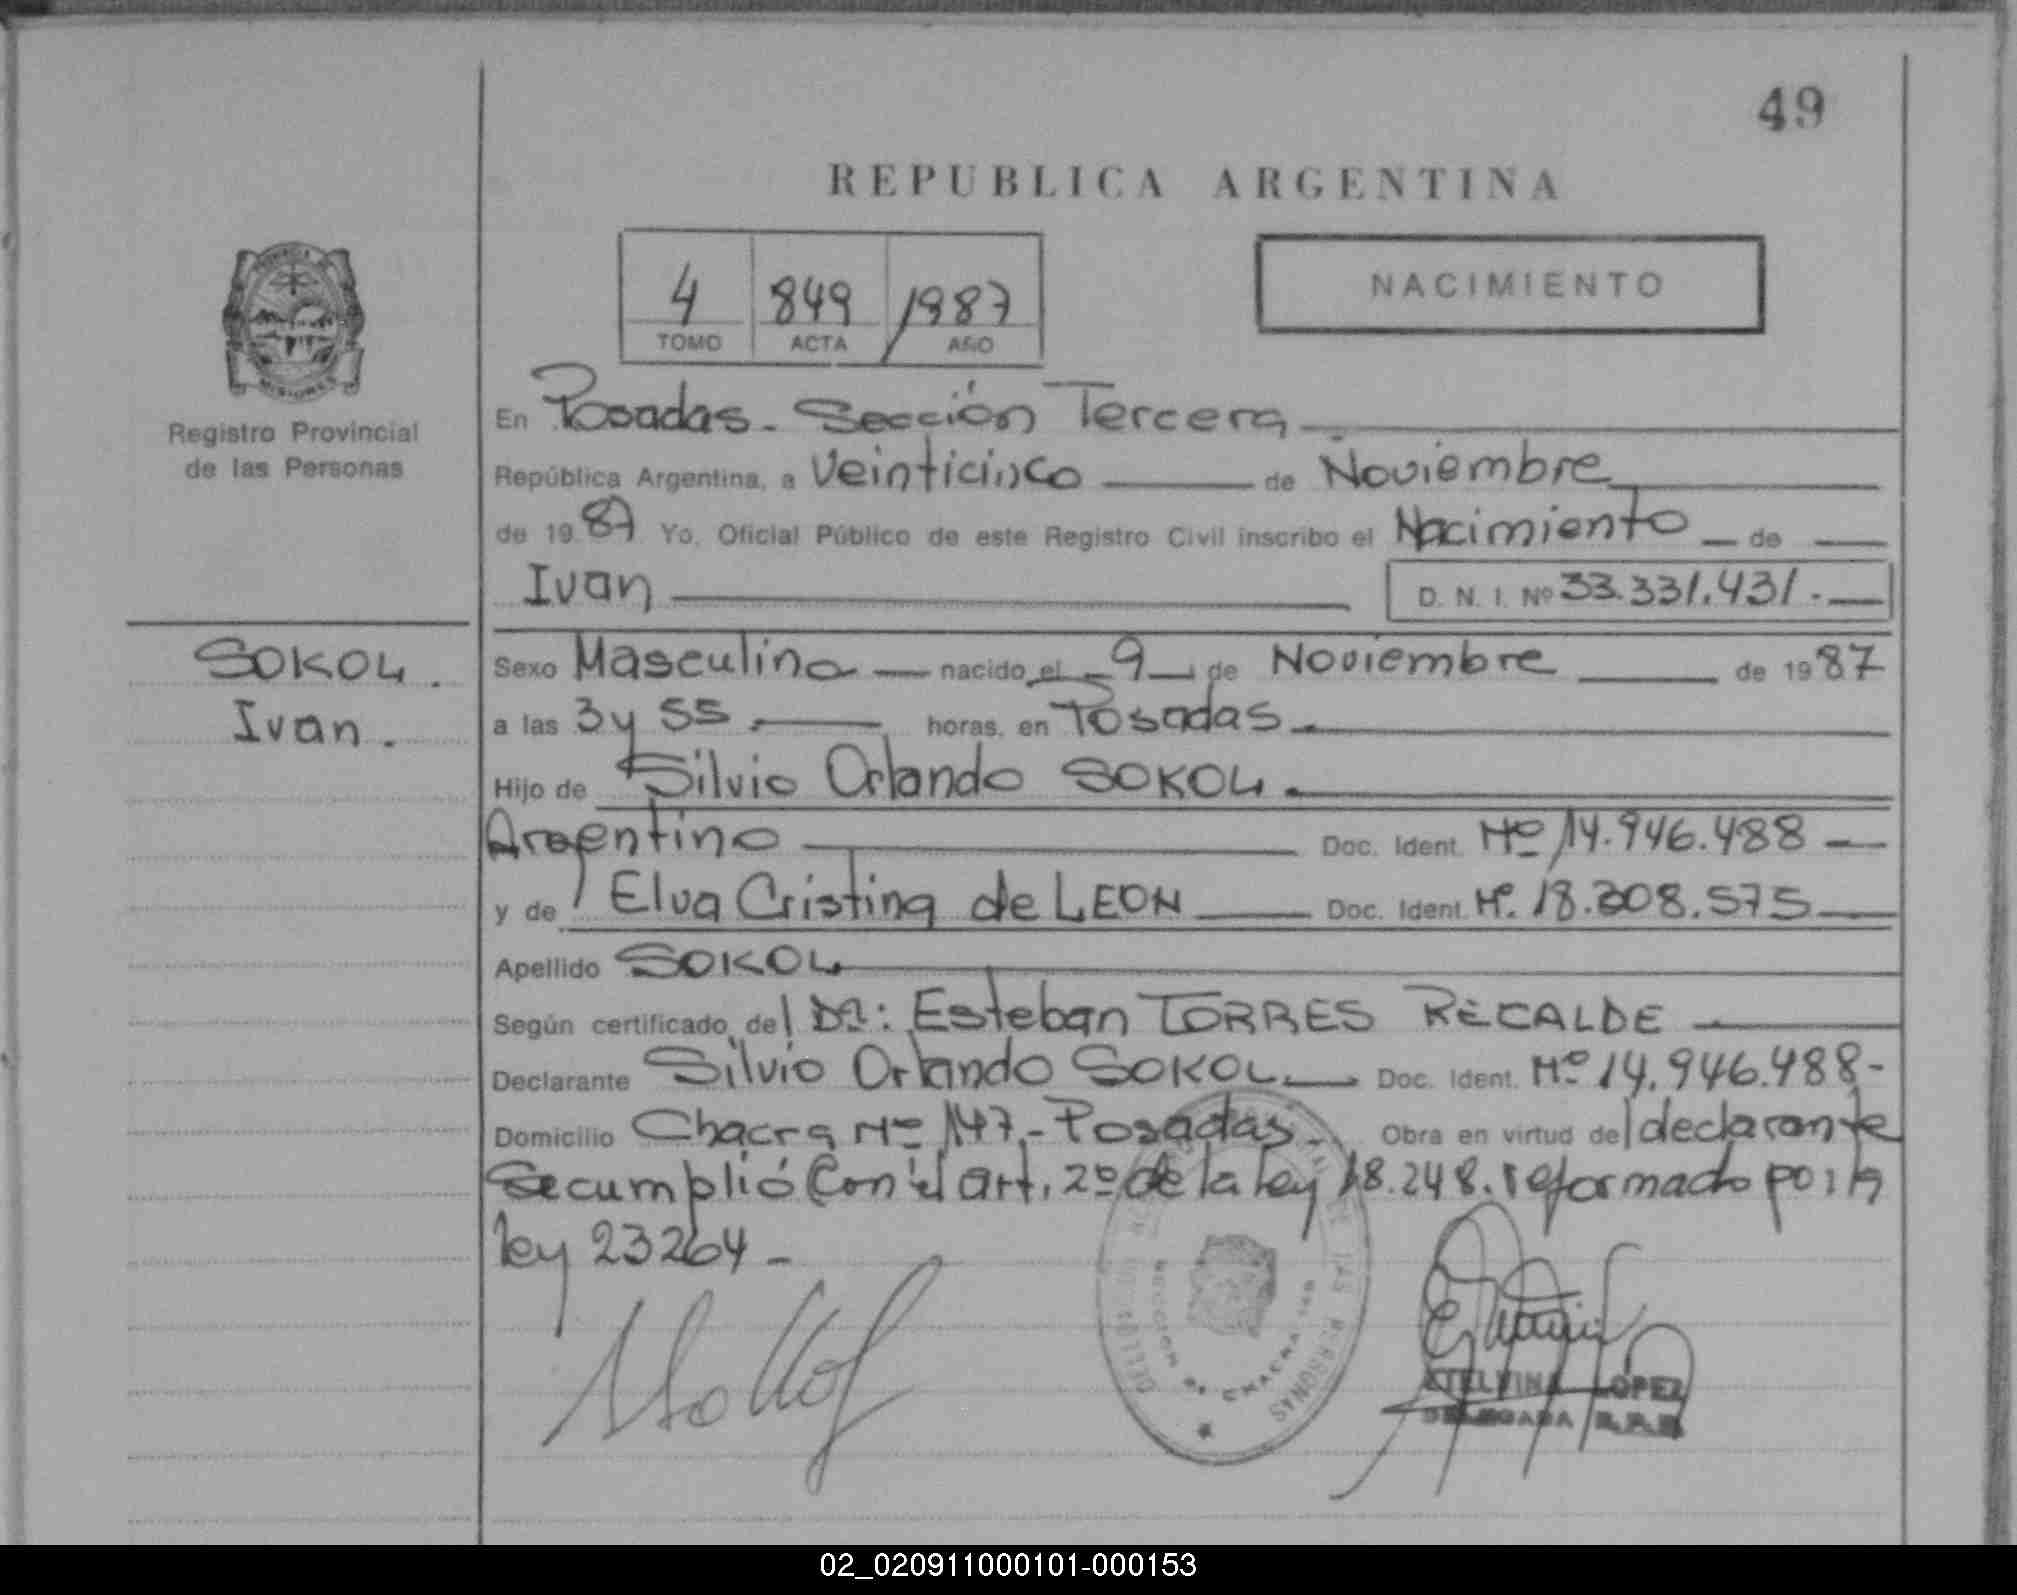 49
REPUBLICA ARGENTINA
4 849 1987
TOMO ACTA AÑO
NACIMIENTO
Registro Provincial
de las Personas
SOKOL.
Ivan.
En Posadas - Sección Tercera
República Argentina, a Veinticinco de Noviembre
de 1987 Yo, Oficial Público de este Registro Civil inscribo el Nacimiento de
Ivan D. N. I. Nº 33.331.431.-
Sexo Masculino nacido el 9 de Noviembre de 1987
a las 3 y 55 . horas, en Posadas.
Hijo de Silvio Orlando SOKOL.
Argentino Doc. Ident. Nº 14.946.488
y de Elva Cristina de LEON Doc. Ident. Nº. 18.308.575
Apellido SOKOL
Según certificado del DR: Esteban TORRES RECALDE
Declarante Silvio Orlando SOKOL Doc. Ident. Nº 14.946.488-
Domicilio Chacra Nº 147.- Posadas. Obra en virtud del declarante
Se cumplió Con el art. 2º de la ley 18.248. reformado por la
ley 23264 -
DE LAS PERSONAS
ETELVINA LOPEZ
DELEGADA R.P.P.
02_020911000101-000153